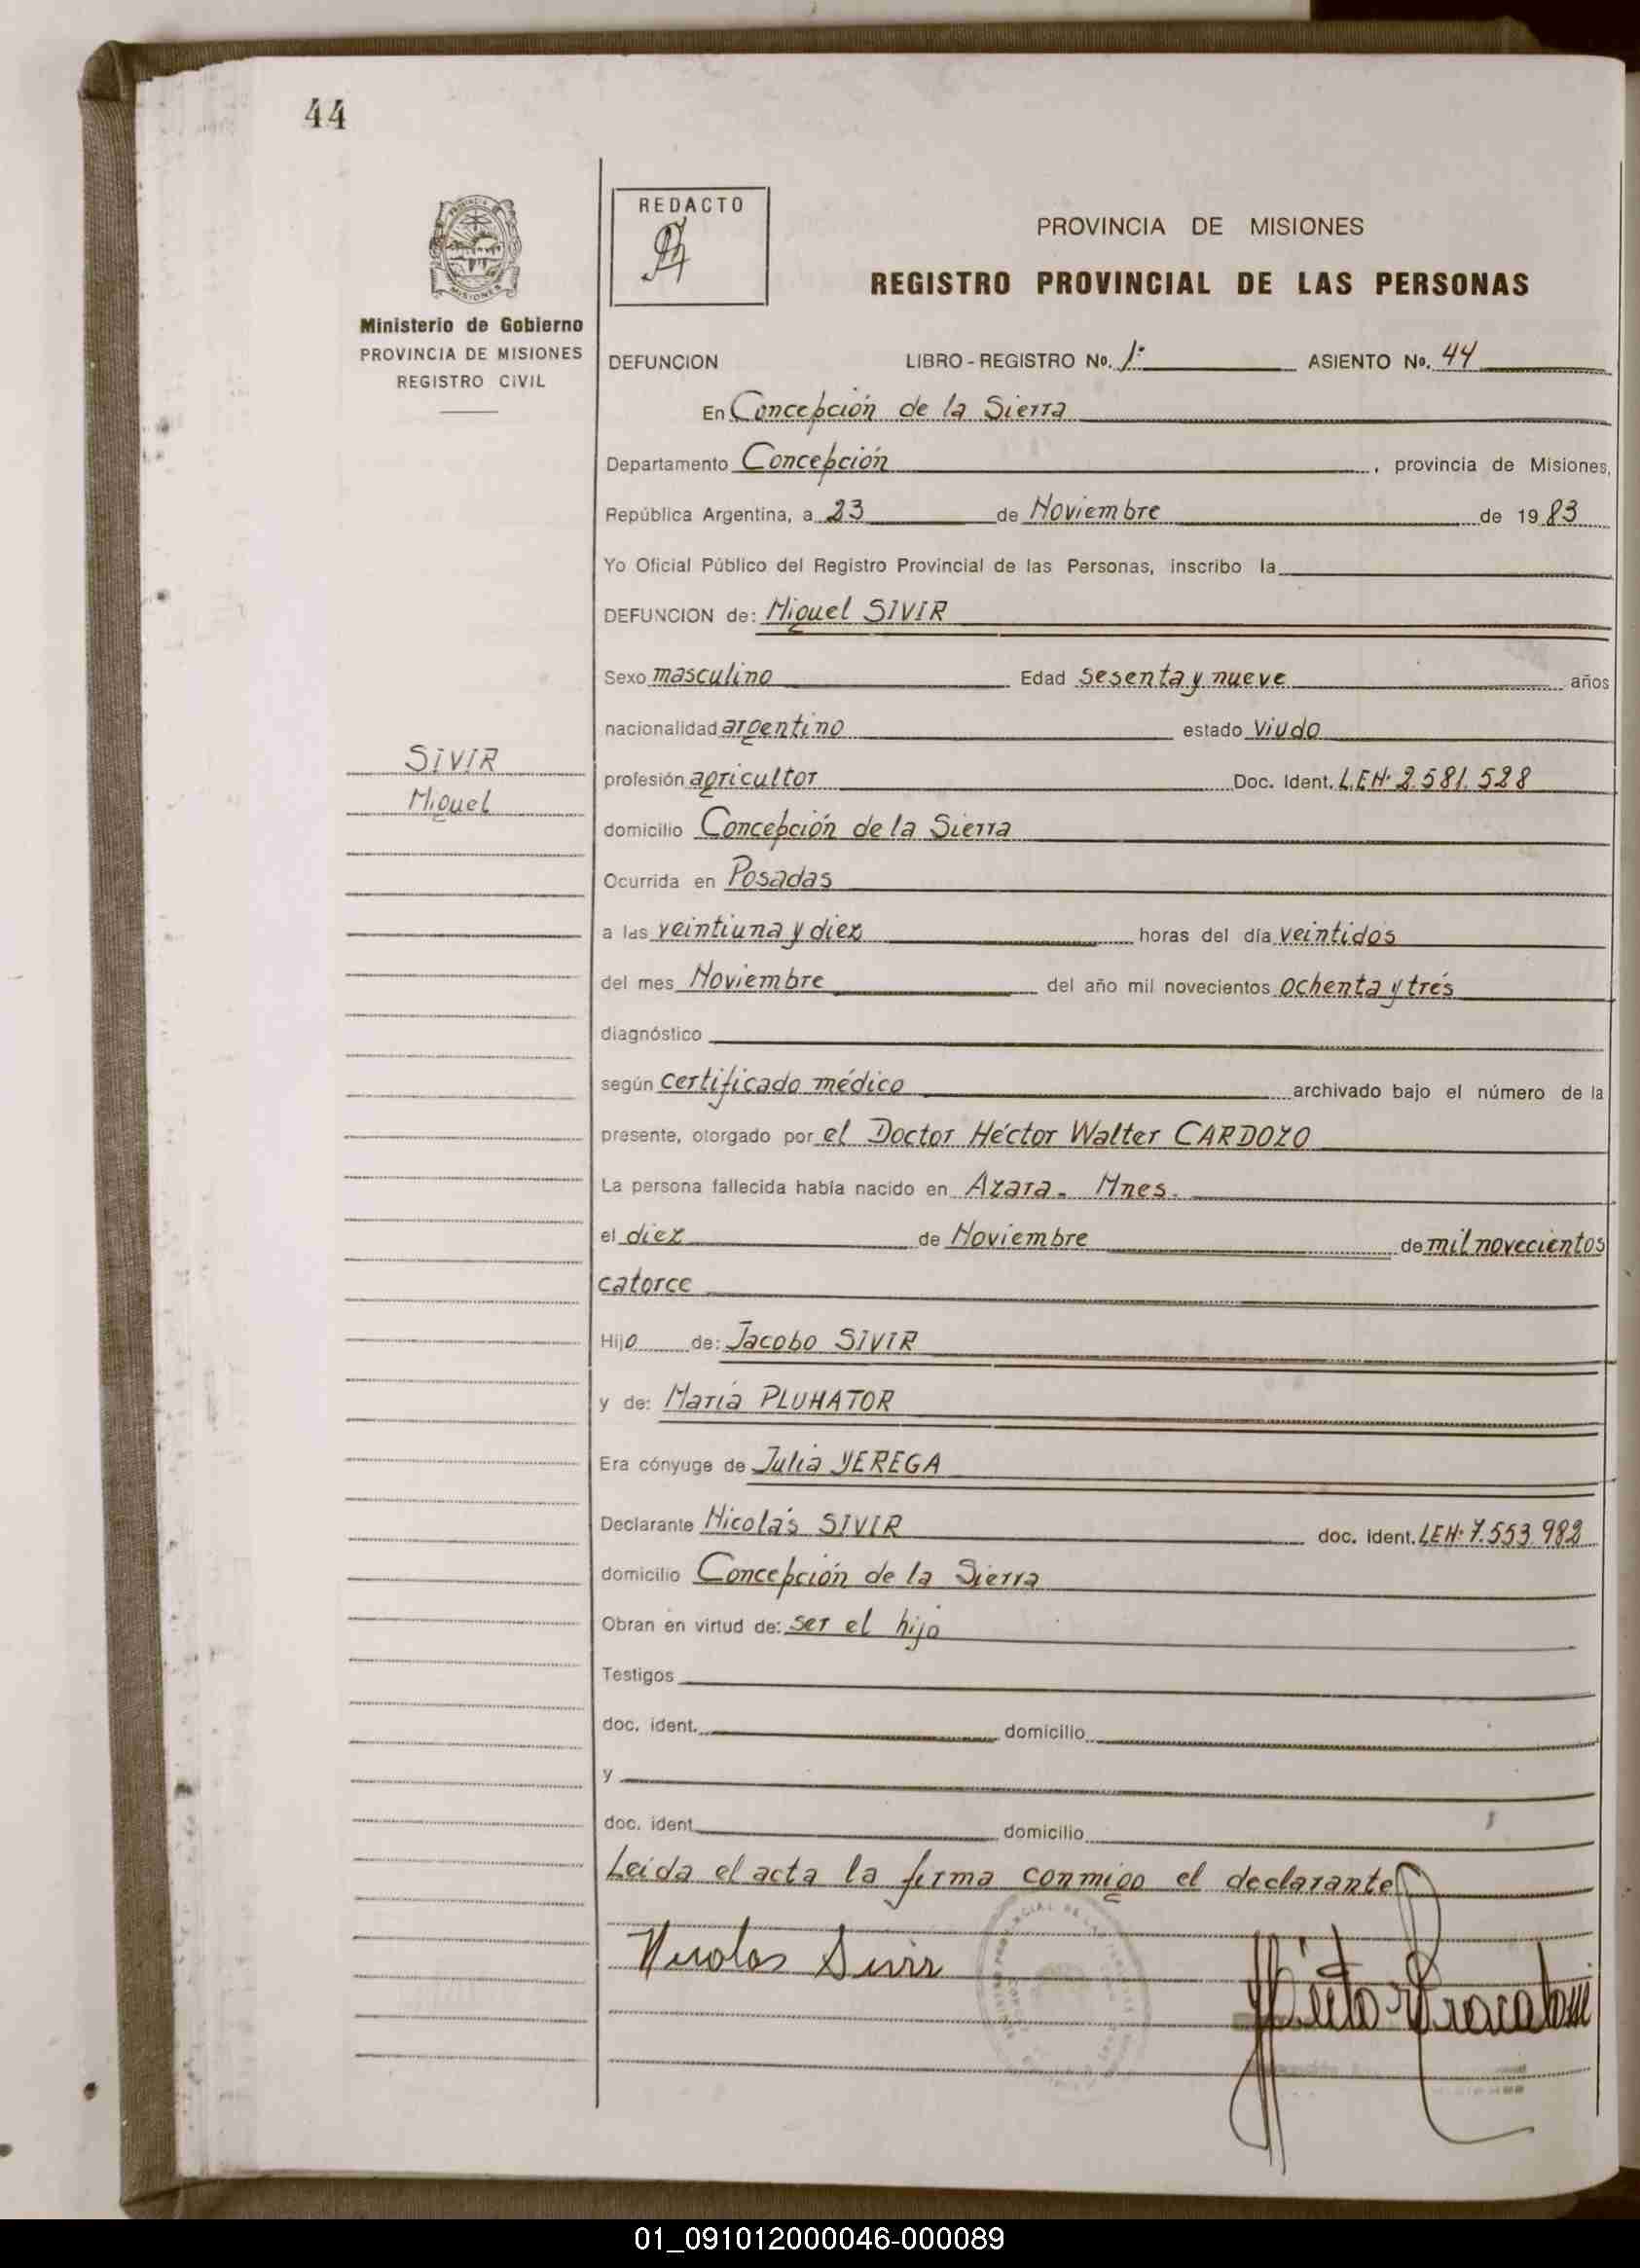 44
REDACTO
PROVINCIA DE MISIONES
REGISTRO PROVINCIAL DE LAS PERSONAS
Ministerio de Gobierno
PROVINCIA DE MISIONES
REGISTRO CIVIL
DEFUNCION LIBRO - REGISTRO No. 1º ASIENTO No. 44
En Concepción de la Sierra
Departamento Concepción, provincia de Misiones,
República Argentina, a 23 de Noviembre de 1983
Yo Oficial Público del Registro Provincial de las Personas, inscribo la
DEFUNCION de: Miguel SIVIR
Sexo masculino Edad sesenta y nueve años
nacionalidad argentino estado viudo
SIVIR
Miguel
profesión agricultor Doc. Ident. L.EN. 2.581.528
domicilio Concepción de la Sierra
Ocurrida en Posadas
a las veintiuna y diez horas del día veintidos
del mes Noviembre del año mil novecientos ochenta y trés
diagnóstico
según certificado médico archivado bajo el número de la
presente, otorgado por el Doctor Héctor Walter CARDOZO
La persona fallecida había nacido en Azara. Mnes.
el diez de Noviembre de mil novecientos
catorce
Hijo de: Jacobo SIVIR
y de: María PLUHATOR
Era cónyuge de Julia YEREGA
Declarante Nicolás SIVIR doc. ident. LEN. 7.553.982
domicilio Concepción de la Sierra
Obran en virtud de: ser el hijo
Testigos
doc. ident. domicilio
y
doc. ident. domicilio
Leida el acta la firma conmigo el declarante
Nicolas Sivir
01_091012000046-000089